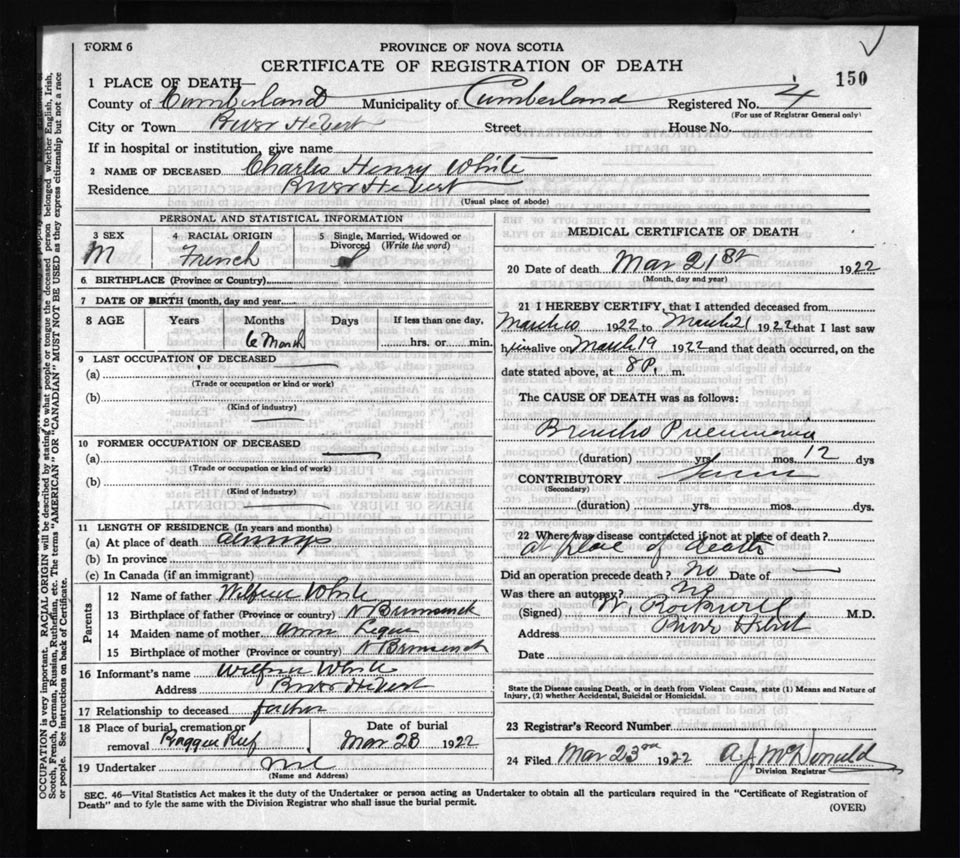 FORM 6
PROVINCE OF NOVA SCOTIA
CERTIFICATE OF REGISTRATION OF DEATH
150
1 PLACE OF DEATH—
County of Cumberland Municipality of Cumberland Registered No. 4
(For use of Registrar General only)
City or Town River Hebert Street House No.
If in hospital or institution, give name
2 NAME OF DECEASED Charles Henry White
Residence River Hebert
(Usual place of abode)
PERSONAL AND STATISTICAL INFORMATION
3 SEX 4 RACIAL ORIGIN 5 Single, Married, Widowed or Divorced (Write the word)
M French S
6 BIRTHPLACE (Province or Country)
7 DATE OF BIRTH (month, day and year
8 AGE Years Months Days If less than one day,
6 Month hrs. or min.
9 LAST OCCUPATION OF DECEASED
(a)
(Trade or occupation or kind or work)
(b)
(Kind of industry)
10 FORMER OCCUPATION OF DECEASED
(a)
(Trade or occupation or kind or work)
(b)
(Kind of industry)
11 LENGTH OF RESIDENCE (In years and months)
(a) At place of death always
(b) In province
(c) In Canada (if an immigrant)
Parents
12 Name of father White
13 Birthplace of father (Province or country) N Brunswick
14 Maiden name of mother Ann
15 Birthplace of mother (Province or country) N Brunswick
16 Informant's name White
Address River Hebert
17 Relationship to deceased father
18 Place of burial, cremation or removal Date of burial
Mar 23 1922
19 Undertaker
(Name and Address)
MEDICAL CERTIFICATE OF DEATH
20 Date of death Mar 21st 1922
(Month, day and year)
21 I HEREBY CERTIFY, that I attended deceased from
March 10 1922 to March 21 1922 that I last saw
him alive on March 19 1922 and that death occurred, on the
date stated above, at 8 P. m.
The CAUSE OF DEATH was as follows:
Broncho Pneumonia
(duration) yrs. mos. 12 dys
CONTRIBUTORY
(Secondary)
(duration) yrs. mos. dys.
22 Where was disease contracted if not at place of death?
at place of death
Did an operation precede death? No Date of —
Was there an autopsy? No
(Signed) W. Rockwell M.D.
Address River Hebert
Date
State the Disease causing Death, or in death from Violent Causes, state (1) Means and Nature of
Injury, (2) whether Accidental, Suicidal or Homicidal.
23 Registrar's Record Number
24 Filed Mar 23rd 1922 A J McDonald
Division Registrar
SEC. 46—Vital Statistics Act makes it the duty of the Undertaker or person acting as Undertaker to obtain all the particulars required in the "Certificate of Registration of
Death" and to fyle the same with the Division Registrar who shall issue the burial permit.
(OVER)
OCCUPATION is very important. RACIAL ORIGIN will be described by stating to what people or tongue the deceased person belonged whether English, Irish,
Scotch, French, German, Russian, Ruthenian, etc. The terms "AMERICAN" OR "CANADIAN" MUST NOT BE USED as they express citizenship but not a race
or people. See instructions on back of Certificate.